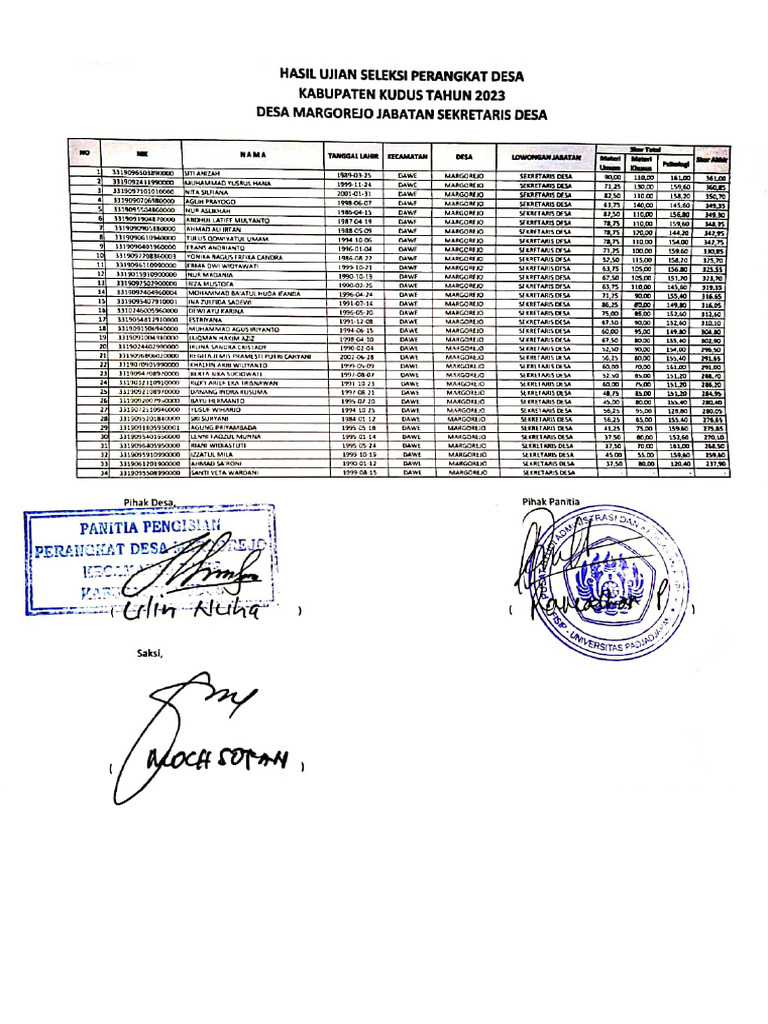 HASIL UJIAN SELEKSI PERANGKAT DESA
KABUPATEN KUDUS TAHUN 2023
DESA MARGOREJO JABATAN SEKRETARIS DESA
NO NIK NAMA TANGGAL LAHIR KECAMATAN DESA LOWONGAN JABATAN Skor Total Skor Akhir
Materi Umum Materi Khusus Psikologi
1 3319096503890000 SITI ANIZAH 1989-03-25 DAWE MARGOREJO SEKRETARIS DESA 90,00 110,00 161,00 361,00
2 3319092411990000 MUHAMMAD YUSRUL HANA 1999-11-24 DAWE MARGOREJO SEKRETARIS DESA 71,25 130,00 159,60 360,85
3 3319097101010000 NITA SILFIANA 2001-01-31 DAWE MARGOREJO SEKRETARIS DESA 82,50 110,00 158,20 350,70
4 3319090706980000 AGUH PRAYOGO 1998-06-07 DAWE MARGOREJO SEKRETARIS DESA 63,75 140,00 145,60 349,35
5 3319095504860000 NUR ASLIKHAH 1986-04-15 DAWE MARGOREJO SEKRETARIS DESA 82,50 110,00 156,80 349,30
6 3319091904870000 ABDHUL LATIEF MULYANTO 1987-04-19 DAWE MARGOREJO SEKRETARIS DESA 78,75 110,00 159,60 348,35
7 3319090905880000 AHMAD ALI IRFAN 1988-05-09 DAWE MARGOREJO SEKRETARIS DESA 78,75 120,00 144,20 342,95
8 3319090610940000 TULUS QOWIYATUL UMAM 1994-10-06 DAWE MARGOREJO SEKRETARIS DESA 78,75 110,00 154,00 342,75
9 3319090401960000 FRANS ANDRIANTO 1996-01-04 DAWE MARGOREJO SEKRETARIS DESA 71,25 100,00 159,60 330,85
10 3319092208860003 YONIKA BAGUS FREIKA CANDRA 1986-08-22 DAWE MARGOREJO SEKRETARIS DESA 52,50 115,00 158,20 325,70
11 3319096110990000 ERMA DWI WIDYAWATI 1999-10-21 DAWE MARGOREJO SEKRETARIS DESA 63,75 105,00 156,80 325,55
12 3319015910900000 NUR MADANIA 1990-10-19 DAWE MARGOREJO SEKRETARIS DESA 67,50 105,00 151,20 323,70
13 3319092502900000 RIZA MUSTOFA 1990-02-25 DAWE MARGOREJO SEKRETARIS DESA 63,75 110,00 145,60 319,35
14 3319092404960004 MOHAMMAD BA'ATUL HUDA IFANDA 1996-04-24 DAWE MARGOREJO SEKRETARIS DESA 71,25 90,00 155,40 316,65
15 3319095407910001 INA ZULFIDA SADEWI 1991-07-14 DAWE MARGOREJO SEKRETARIS DESA 86,25 80,00 149,80 316,05
16 DEWI AYU KARINA 1996-05-20 DAWE MARGOREJO SEKRETARIS DESA 75,00 85,00 152,60 312,60
17 3319054812910000 ESTRIYANA 1991-12-08 DAWE MARGOREJO SEKRETARIS DESA 67,50 90,00 152,60 310,10
18 3319091506940000 MUHAMMAD AGUS IRIYANTO 1994-06-15 DAWE MARGOREJO SEKRETARIS DESA 60,00 95,00 149,80 304,80
19 LUQMAN HAKIM AZIZ 1998-04-10 DAWE MARGOREJO SEKRETARIS DESA 67,50 80,00 155,40 302,90
20 3319024402900000 IRLINA SANDRA CRISTADY 1990-02-04 DAWE MARGOREJO SEKRETARIS DESA 52,50 90,00 154,00 296,50
21 3319096806020000 REGITA JEMIS PRAMESTI PUTRI CAHYANI 2002-06-28 DAWE MARGOREJO SEKRETARIS DESA 56,25 80,00 155,40 291,65
22 3319070905990000 KHALFIN ARBI WILIYANTO 1999-05-09 DAWE MARGOREJO SEKRETARIS DESA 60,00 70,00 161,00 291,00
23 3319094708970000 BERTA SIKA SUCIOWATI 1997-08-07 DAWE MARGOREJO SEKRETARIS DESA 52,50 85,00 151,20 288,70
24 RIZKY ARIEF EKA TRISNAWAN 1991-10-23 DAWE MARGOREJO SEKRETARIS DESA 60,00 75,00 151,20 286,20
25 3319092108970000 DANANG INDRA KUSUMA 1997-08-21 DAWE MARGOREJO SEKRETARIS DESA 48,75 85,00 151,20 284,95
26 3319092007950000 BAYU HERMANTO 1995-07-20 DAWE MARGOREJO SEKRETARIS DESA 45,00 80,00 155,40 280,40
27 3319072510940000 YUSUF WIHARJO 1994-10-25 DAWE MARGOREJO SEKRETARIS DESA 56,25 95,00 128,80 280,05
28 3319095201840000 SRI SURYANI 1984-01-12 DAWE MARGOREJO SEKRETARIS DESA 56,25 65,00 155,40 276,65
29 3319091805950001 AGUNG PRIYAMBADA 1995-05-18 DAWE MARGOREJO SEKRETARIS DESA 41,25 75,00 159,60 275,85
30 3319095401950000 LENNI FAOZUL MUNNA 1995-01-14 DAWE MARGOREJO SEKRETARIS DESA 37,50 80,00 152,60 270,10
31 3319096405950000 RIANI WIDIASTUTI 1995-05-24 DAWE MARGOREJO SEKRETARIS DESA 37,50 70,00 161,00 268,50
32 3319095910990000 IZZATUL MILA 1999-10-19 DAWE MARGOREJO SEKRETARIS DESA 45,00 55,00 159,60 259,60
33 3319061201900000 AHMAD SA'RONI 1990-01-12 DAWE MARGOREJO SEKRETARIS DESA 37,50 80,00 120,40 237,90
34 3319095508990000 SANTI VETA WARDANI 1999-08-15 DAWE MARGOREJO SEKRETARIS DESA - - - -
Pihak Desa,
Pihak Panitia
PANITIA PENGISIAN
PERANGKAT DESA MARGOREJO
( Ulin Nuha )
FISIP - UNIVERSITAS PADJADJARAN
Saksi,
( MOCH SOFAN )